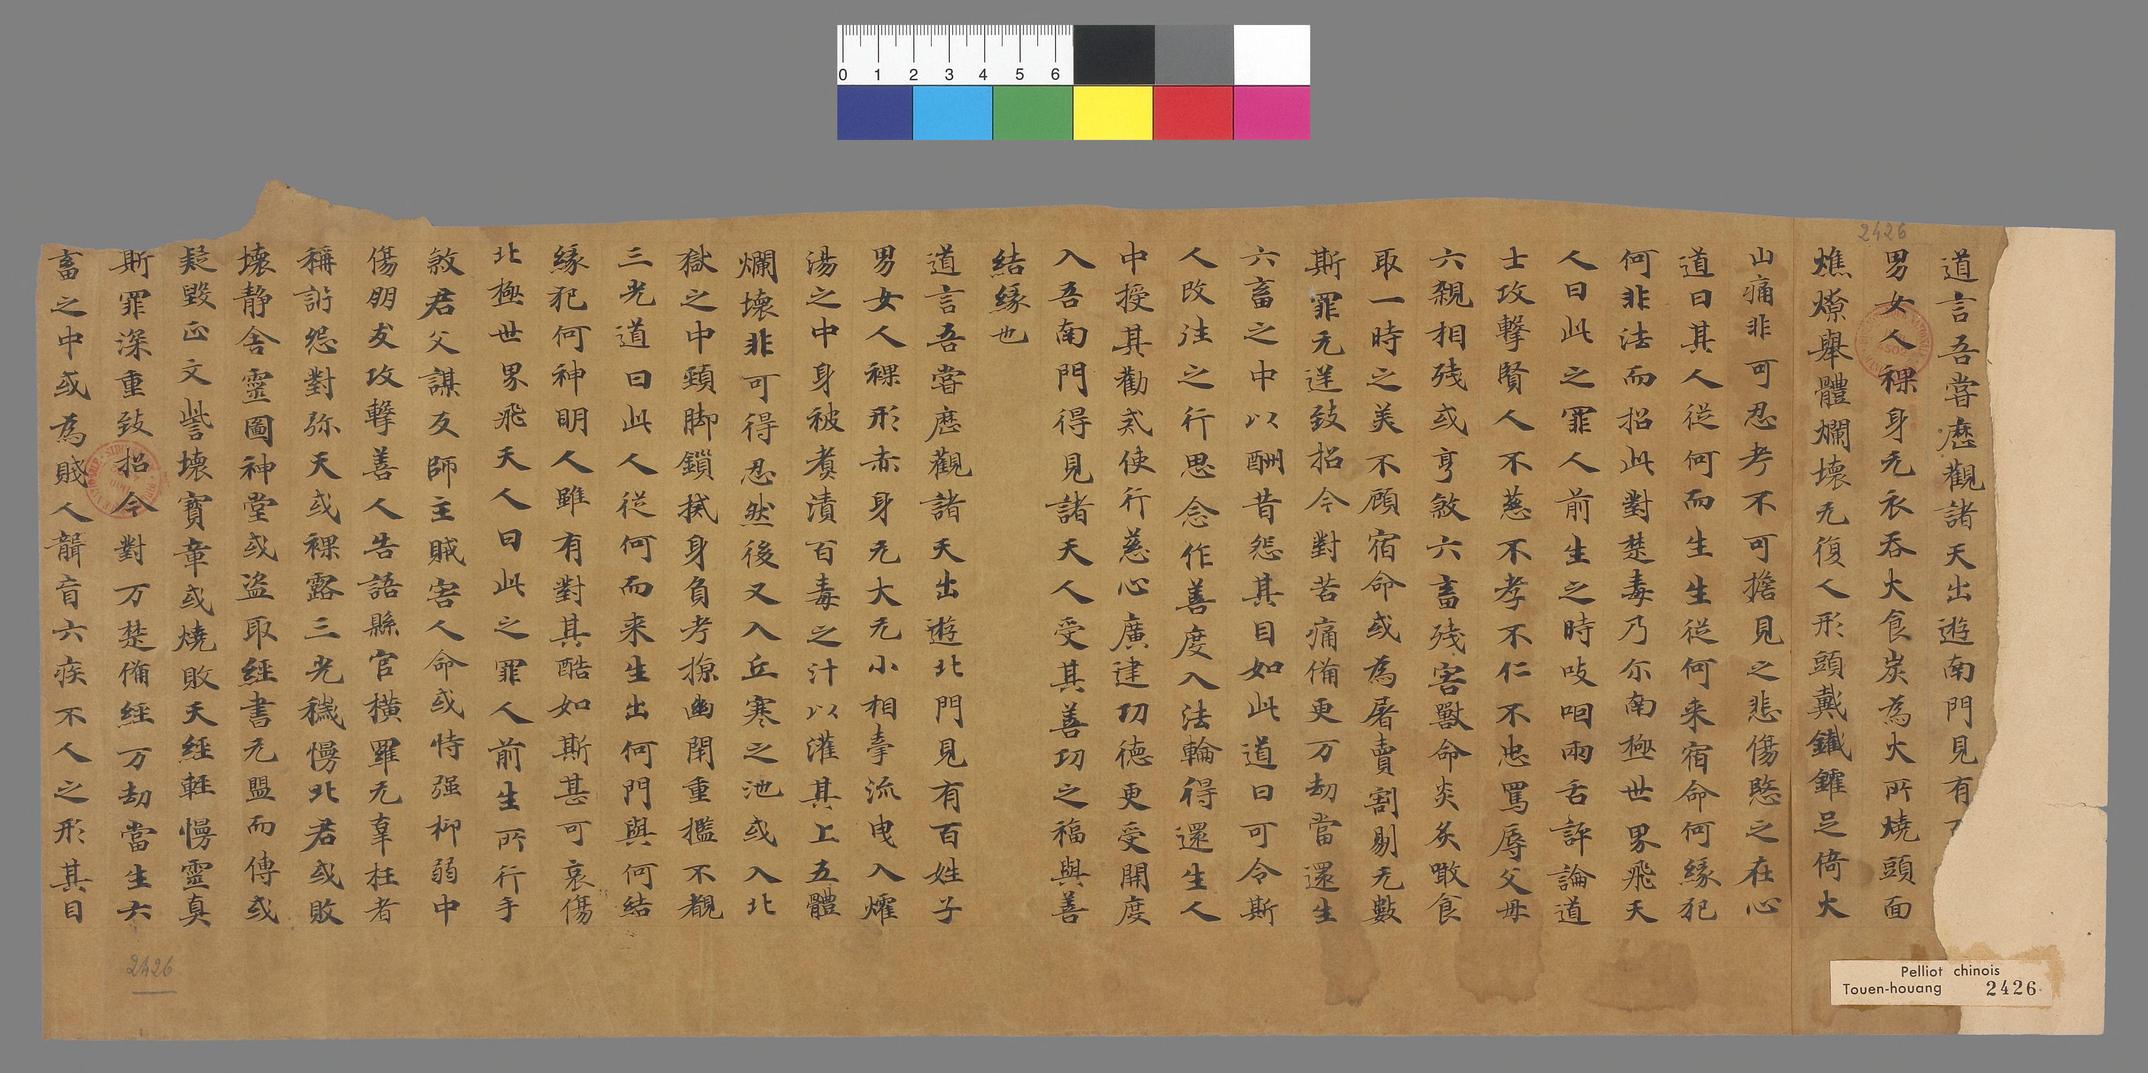 0 1 2 3 4 5 6
2426
道言吾嘗歷觀諸天出遊南門見有
男女人裸身无衣吞火食炭為火所燒頭面
燋燎舉體爛壞无復人形頭戴鐵鑵足倚火
山痛非可忍考不可擔見之悲傷愍之在心
道曰其人從何而生生從何来宿命何緣犯
何非法而招此對楚毒乃尓南極世界飛天
人曰此之罪人前生之時吱咽兩舌評論道
士攻擊賢人不慈不孝不仁不忠罵辱父母
六親相殘或亨煞六畜殘害獸命炎炙噉食
取一時之美不顧宿命或為屠賣割剔无數
斯罪无送致招今對苦痛備更万劫當還生
六畜之中以酬昔怨其目如此道曰可令斯
人改往之行思念作善度入法輪得還生人
中授其勸戒使行慈心廣建功德更受開度
入吾南門得見諸天人受其善功之福與善
結緣也
道言吾嘗歷觀諸天出遊北門見有百姓子
男女人裸形赤身无大无小相牽流曳入爟
湯之中身被煑漬百毒之汁以灌其上五體
爛壞非可得忍然後又入丘寒之池或入北
獄之中頸脚鎖械身負考掠幽閉重檻不覩
三光道曰此人從何而来生出何門與何結
緣犯何神明人雖有對其酷如斯甚可哀傷
北極世界飛天人曰此之罪人前生所行手
煞君父謀反師主賊害人命或恃强抑弱中
傷朋友攻擊善人告語縣官橫羅无辜枉者
稱訴怨對弥天或裸露三光穢慢北君或敗
壞静舍靈圖神堂或盜取經書无盟而傳或
疑毀正文訾壞寶章或燒敗天經輕慢靈真
斯罪深重致招今對万楚備經万劫當生六
畜之中或為賤人聾盲六疾不人之形其目
2426
Pelliot chinois
Touen-houang 2426